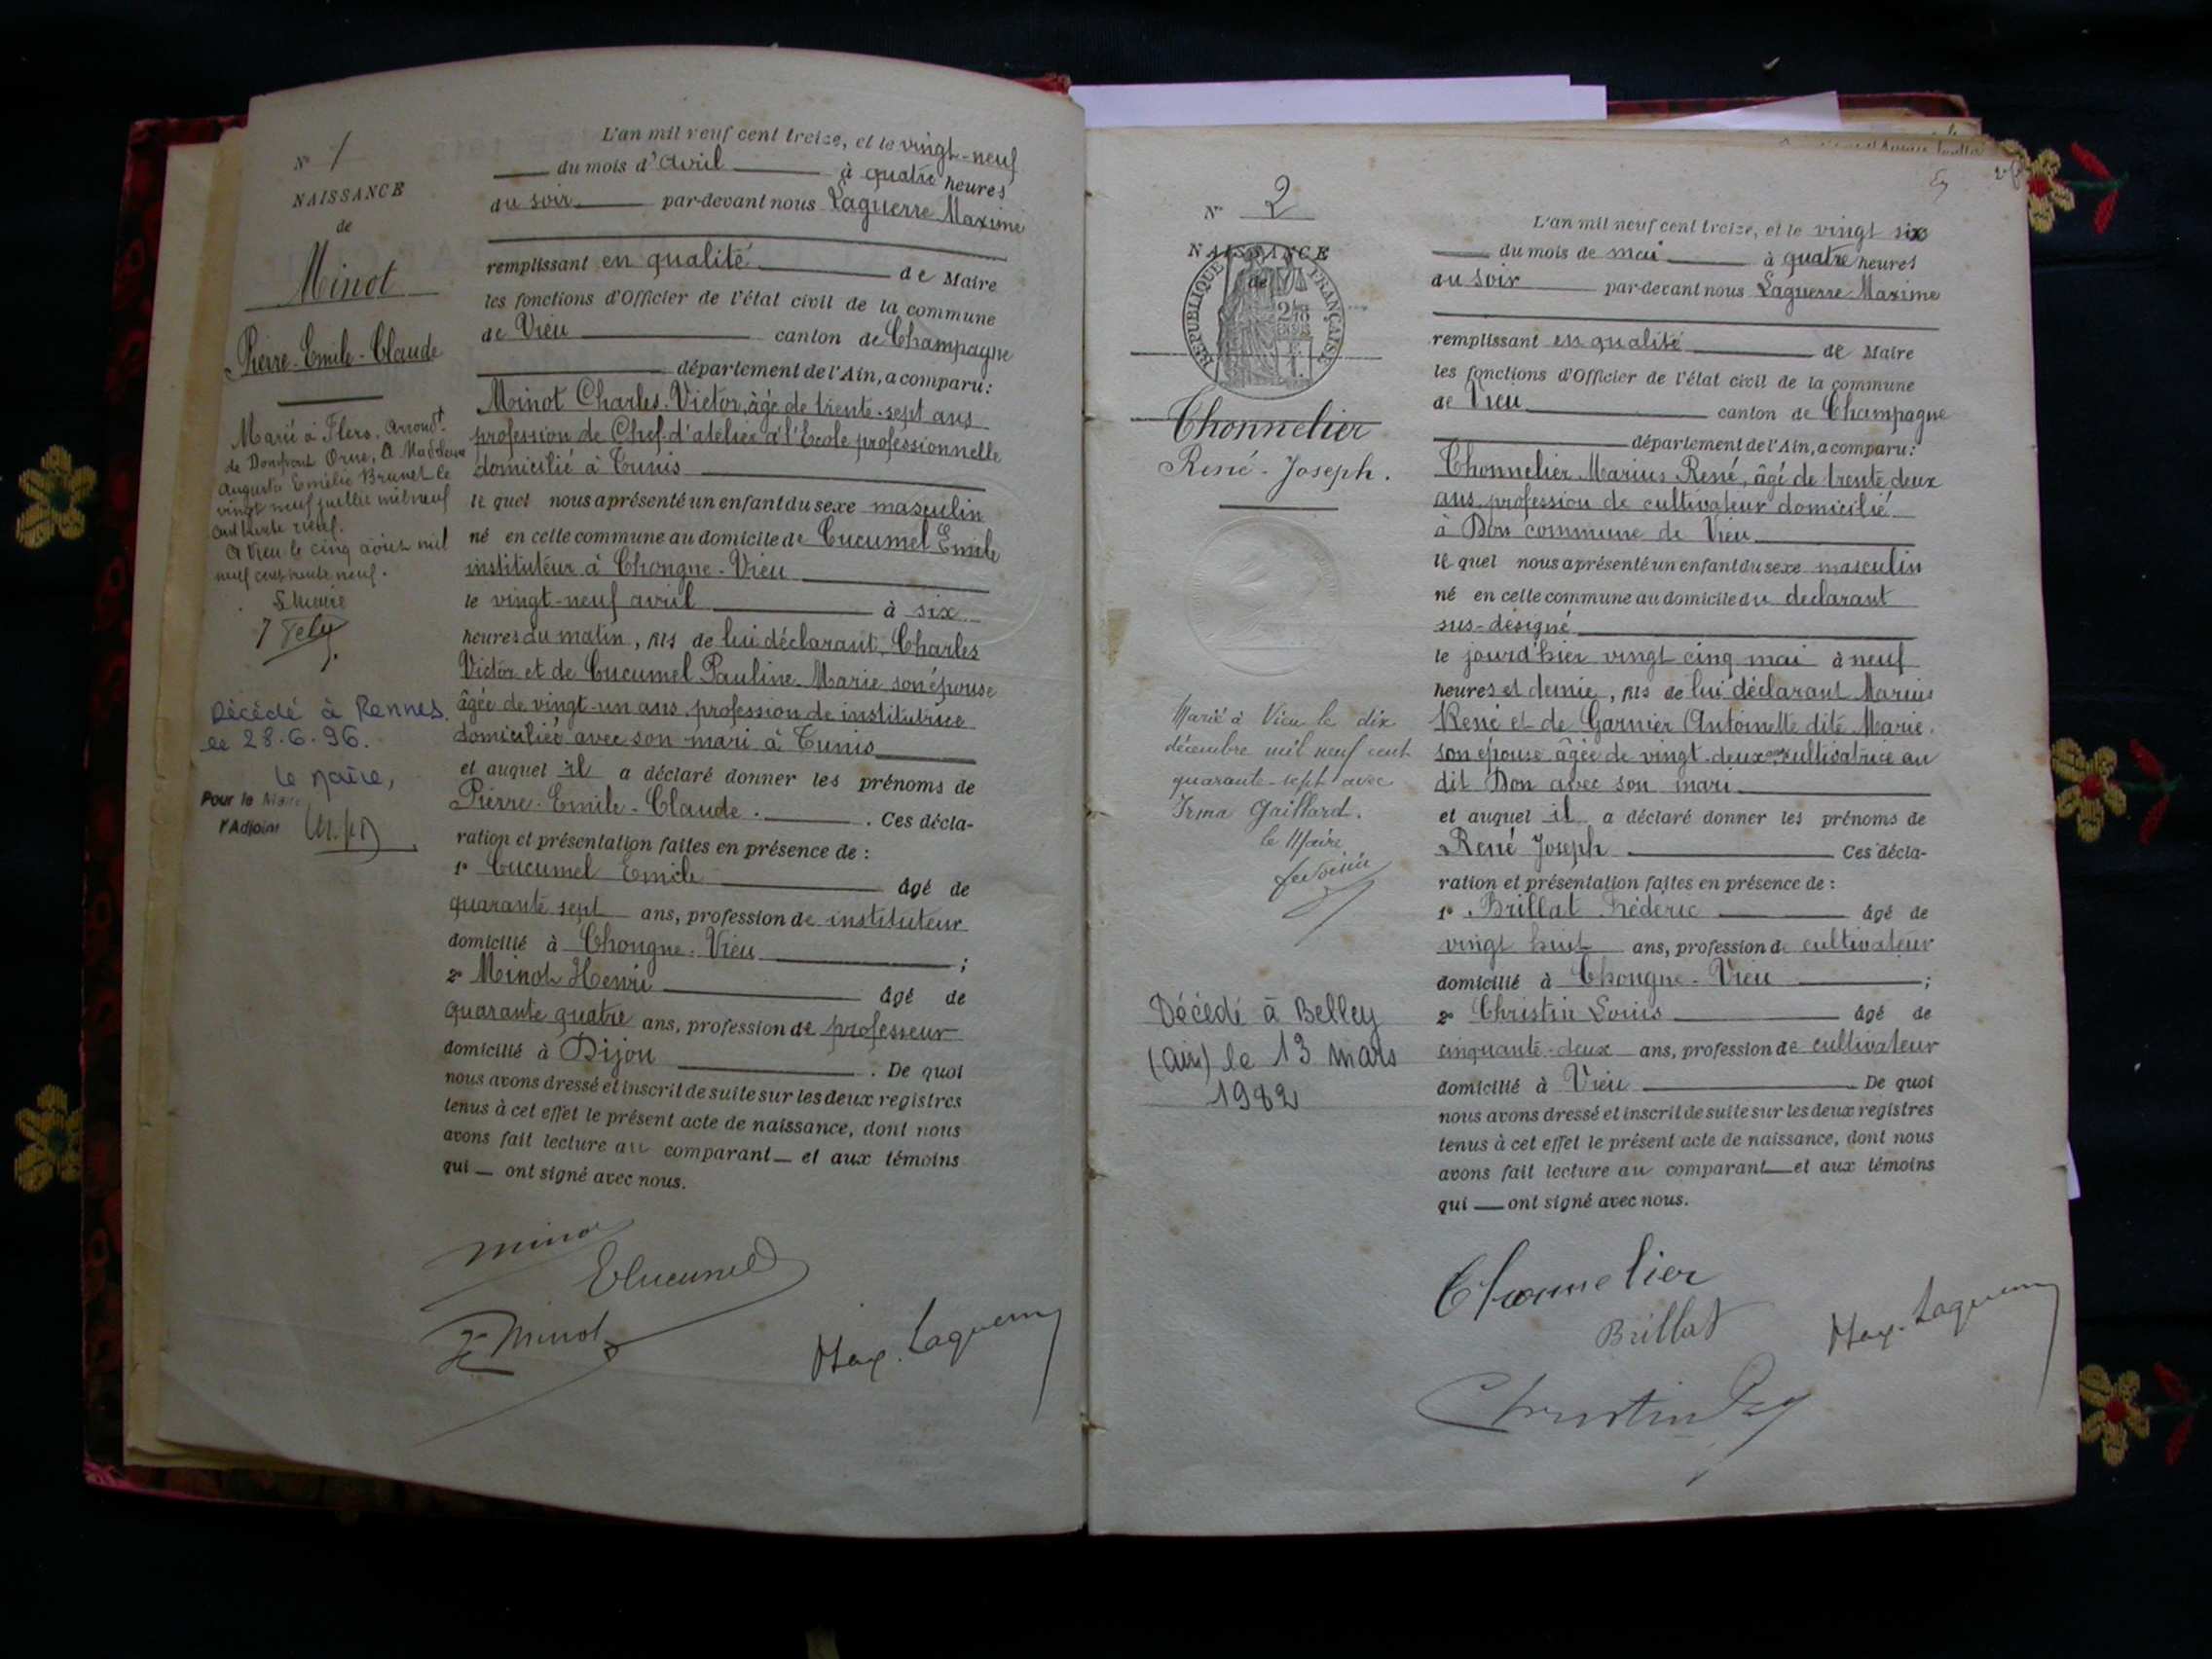 N° 1
NAISSANCE
de
Minot
Pierre-Emile-Claude
Marié à Flers, Arrond.t
de Domfront Orne, à Madeleine
Augusta Emélie Brunet le
vingt neuf juillet mil neuf
cent trente neuf.
A Vieu le cinq août mil
neuf cent trente neuf.
Le Maire
Décédé à Rennes
le 28.6.96.
Le Maire,
Pour le Maire
l'Adjoint
L'an mil neuf cent treize, et le vingt-neuf
du mois d'avril à quatre heures
du soir par-devant nous Laguerre Maxime
remplissant en qualité de Maire
les fonctions d'Officier de l'état civil de la commune
de Vieu canton de Champagne
département de l'Ain, a comparu:
Minot Charles-Victor, âgé de trente-sept ans
profession de Chef d'atelier à l'Ecole professionnelle
domicilié à Tunis
le quel nous a présenté un enfant du sexe masculin
né en cette commune au domicile de Cucumel Emile
instituteur à Chongne-Vieu
le vingt-neuf avril à six
heures du matin, fils de lui déclarant, Charles
Victor et de Cucumel Pauline Marie son épouse
âgée de vingt-un ans, profession de institutrice
domiciliée avec son mari à Tunis
et auquel il a déclaré donner les prénoms de
Pierre-Emile-Claude. . Ces décla-
ration et présentation faites en présence de :
1° Cucumel Emile âgé de
quarante sept ans, profession de instituteur
domicilié à Chongne-Vieu ;
2° Minot Henri âgé de
quarante quatre ans, profession de professeur
domicilié à Dijon . De quoi
nous avons dressé et inscrit de suite sur les deux registres
tenus à cet effet le présent acte de naissance, dont nous
avons fait lecture au comparant et aux témoins
qui ont signé avec nous.
Minot
ECucumel
H Minot
Max. Laguerre
N° 2
NAISSANCE
de
RÉPUBLIQUE FRANÇAISE
Thonnelier
René-Joseph.
Marié à Vieu le dix
décembre mil neuf cent
quarante-sept avec
Irma Gaillard.
le Maire
Décédé à Belley
(Ain) le 13 mars
1982
L'an mil neuf cent treize, et le vingt six
du mois de mai à quatre heures
du soir par-devant nous Laguerre Maxime
remplissant en qualité de Maire
les fonctions d'Officier de l'état civil de la commune
de Vieu canton de Champagne
département de l'Ain, a comparu:
Thonnelier Marius René, âgé de trente deux
ans, profession de cultivateur domicilié
à Don commune de Vieu
le quel nous a présenté un enfant du sexe masculin
né en cette commune au domicile du declarant
sus-désigné
le jourd'hier vingt cinq mai à neuf
heures et demie, fils de lui déclarant Marius
René et de Garnier Antoinette dite Marie.
son épouse âgée de vingt-deux ans cultivatrice au
dit Don avec son mari
et auquel il a déclaré donner les prénoms de
René Joseph Ces décla-
ration et présentation faites en présence de :
1° Brillat Fréderic âgé de
vingt huit ans, profession de cultivateur
domicilié à Chongne-Vieu ;
2° Christin Louis âgé de
cinquante-deux ans, profession de cultivateur
domicilié à Vieu De quoi
nous avons dressé et inscrit de suite sur les deux registres
tenus à cet effet le présent acte de naissance, dont nous
avons fait lecture au comparant et aux témoins
qui ont signé avec nous.
Thonnelier
Brillat
Max. Laguerre
Christin